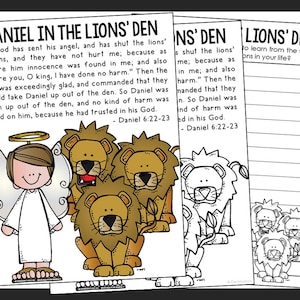 ANIEL IN THE LIONS' DEN
od has sent his angel, and has shut the lions'
hs, and they have not hurt me; because as
re him innocence was found in me; and also
re you, O king, I have done no harm." Then the
was exceedingly glad, and commanded that they
d take Daniel up out of the den. So Daniel was
n up out of the den, and no kind of harm was
d on him, because he had trusted in his God.
- Daniel 6:22-23
NS' DEN
the lions'
because as
and also
Then the
nded that they
Daniel was
harm was
his God.
6:22-23
LIONS' DE
to learn from the
ons in your life?